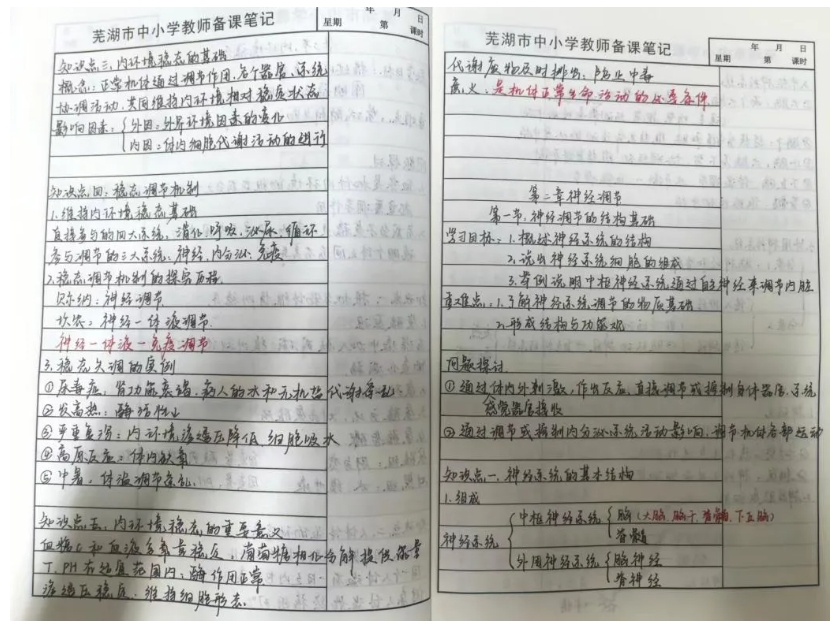 芜湖市中小学教师备课笔记
年 月 日
星期 第 课时
知识点三、内环境稳态的基础
概念：正常机体通过调节作用，各个器官、系统
协调活动，共同维持内环境相对稳定状态
影响因素：外因：外界环境因素的变化
内因：体内细胞代谢活动的进行
知识点四：稳态调节机制
1.维持内环境稳态基础
直接参与的四大系统，消化 呼吸，泌尿、循环
参与调节的三大系统，神经，内分泌 免疫
2.稳态调节机制的探究历程
贝尔纳：神经调节
坎农：神经－体液调节
神经－体液－免疫调节
3.稳态失调的实例
①尿毒症，肾功能衰竭，病人的水和无机盐代谢紊乱
②发高热：酶活性
③严重
内环境渗透压降低，细胞吸水
④高原反应：体内缺氧
⑤中暑，体温调节紊乱
知识点五、内环境稳态的重要意义
血糖 和血液含氧量稳定，葡萄糖 分解提供能量
T、PH 在适宜范围内：酶作用正常
渗透压稳定，维持细胞形态
芜湖市中小学教师备课笔记
年 月 日
星期 第 课时
代谢废物及时排出：防止中毒
意义，是机体正常生命活动的必要条件
第二章神经调节
第一节，神经调节的结构基础
学习目标：1.概述神经系统的结构
2.说出神经系统细胞的组成
3.举例说明中枢神经系统通过自主神经来调节内脏
重难点：1.了解神经系统调节的物质基础
2.形成结构与功能观
问题探讨
①通过体内外刺激，作出反应，直接调节或控制自体器官、系统
感觉器官接收
②通过调节或控制内分泌系统活动影响，调节机体各部运动
知识点一、神经系统的基本结构
1.组成
神经系统 中枢神经系统 脑（大脑、脑干、 下丘脑）
脊髓
外周神经系统 脑神经
脊神经